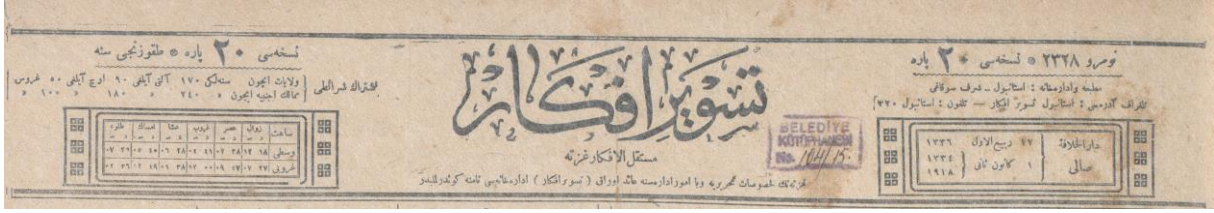 نومرو ٢٣٢٨ * نسخه‌سی ٢٠ پاره
مطبعه و اداره‌خانه : استانبول ـ شرف سوقاغی
تلغراف آدرسی : استانبول تصویر افکار — تلفون : استانبول ٣٢٠
دارالخلافة
صالی
١٧ ربیع‌الاول ١٣٣٦
١ کانون ثانی ١٣٣٤
١٩١٨
تصویر افکار
مستقل الافکار غزته
BELEDİYE
KÜTÜPHANESİ
No.
غزته‌نك خصوصات تحریریه ویا امور اداره‌سنه عائد اوراق ( تصویر افکار ) اداره‌خانه‌سی نامنه کوندرلملیدر
نسخه‌سی ٢٠ پاره * طقوزنجی سنه
اشتراك شرائطی
ولایات ایچون سنه‌لکی ١٧٠ آلتی آیلغی ٩٠ اوچ آیلغی ٥٠ غروس
ممالك اجنبیه ایچون » ٢٤٠ » ١٨٠ » ١٠٠ »
ساعت زوال عصر غروب عشا امساك طلوع
وسطی
غروبی